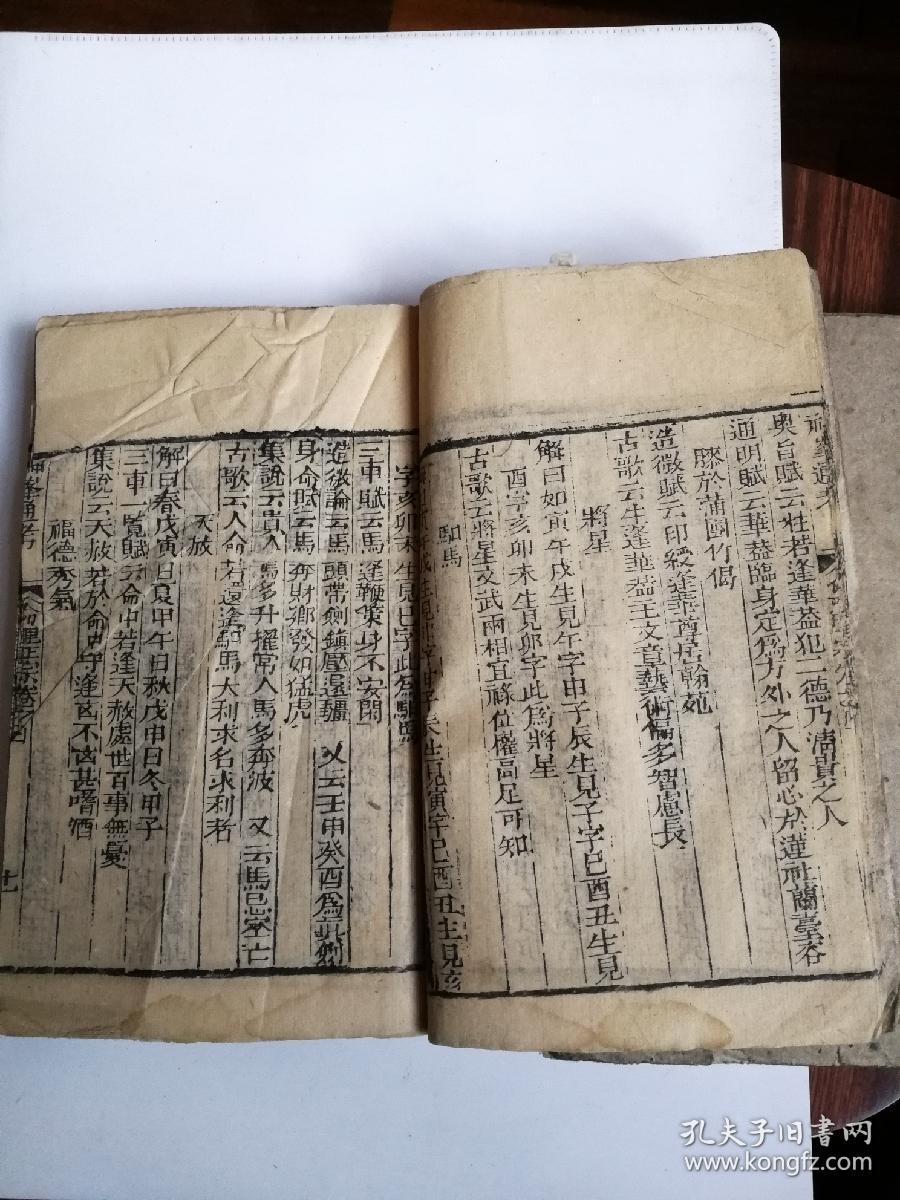 奧旨賦云性若逢華蓋犯二德乃清貴之人
通明賦云華蓋臨身定為方外之人留心於蓮社蘭臺吞
膝於蒲團竹偈
造微賦云印綬逢華尊居翰苑
古歌云生逢華蓋主文章藝術偏多智慮長
將星
解曰如寅午戌生見午字申子辰生見子字巳酉丑生見
酉字亥卯未生見卯字此為將星
古歌云將星文武兩相宜祿位權高足可知
馹馬
生見寅字巳酉丑生見亥
字亥卯未生見巳字此為馹馬
三車賦云馬逢鞭策身不安閑
造微論云馬頭帶劍鎮壓邊疆 又云壬申癸酉為劍
身命賦云馬奔財鄉發如猛虎
集說云貴人馬多升擢常人馬多奔波 又云馬忌空亡
古歌云人命若還逢馹馬大利求名求利者
天赦
解曰春戊寅日夏甲午日秋戊申日冬甲子
三車一覽賦云命中若逢天赦處世百事無憂
集說云天赦若於命中守逢凶不凶甚嗜酒
福德秀氣
峯通考
命理正宗卷
廿
孔夫子旧书网
www.kongfz.com